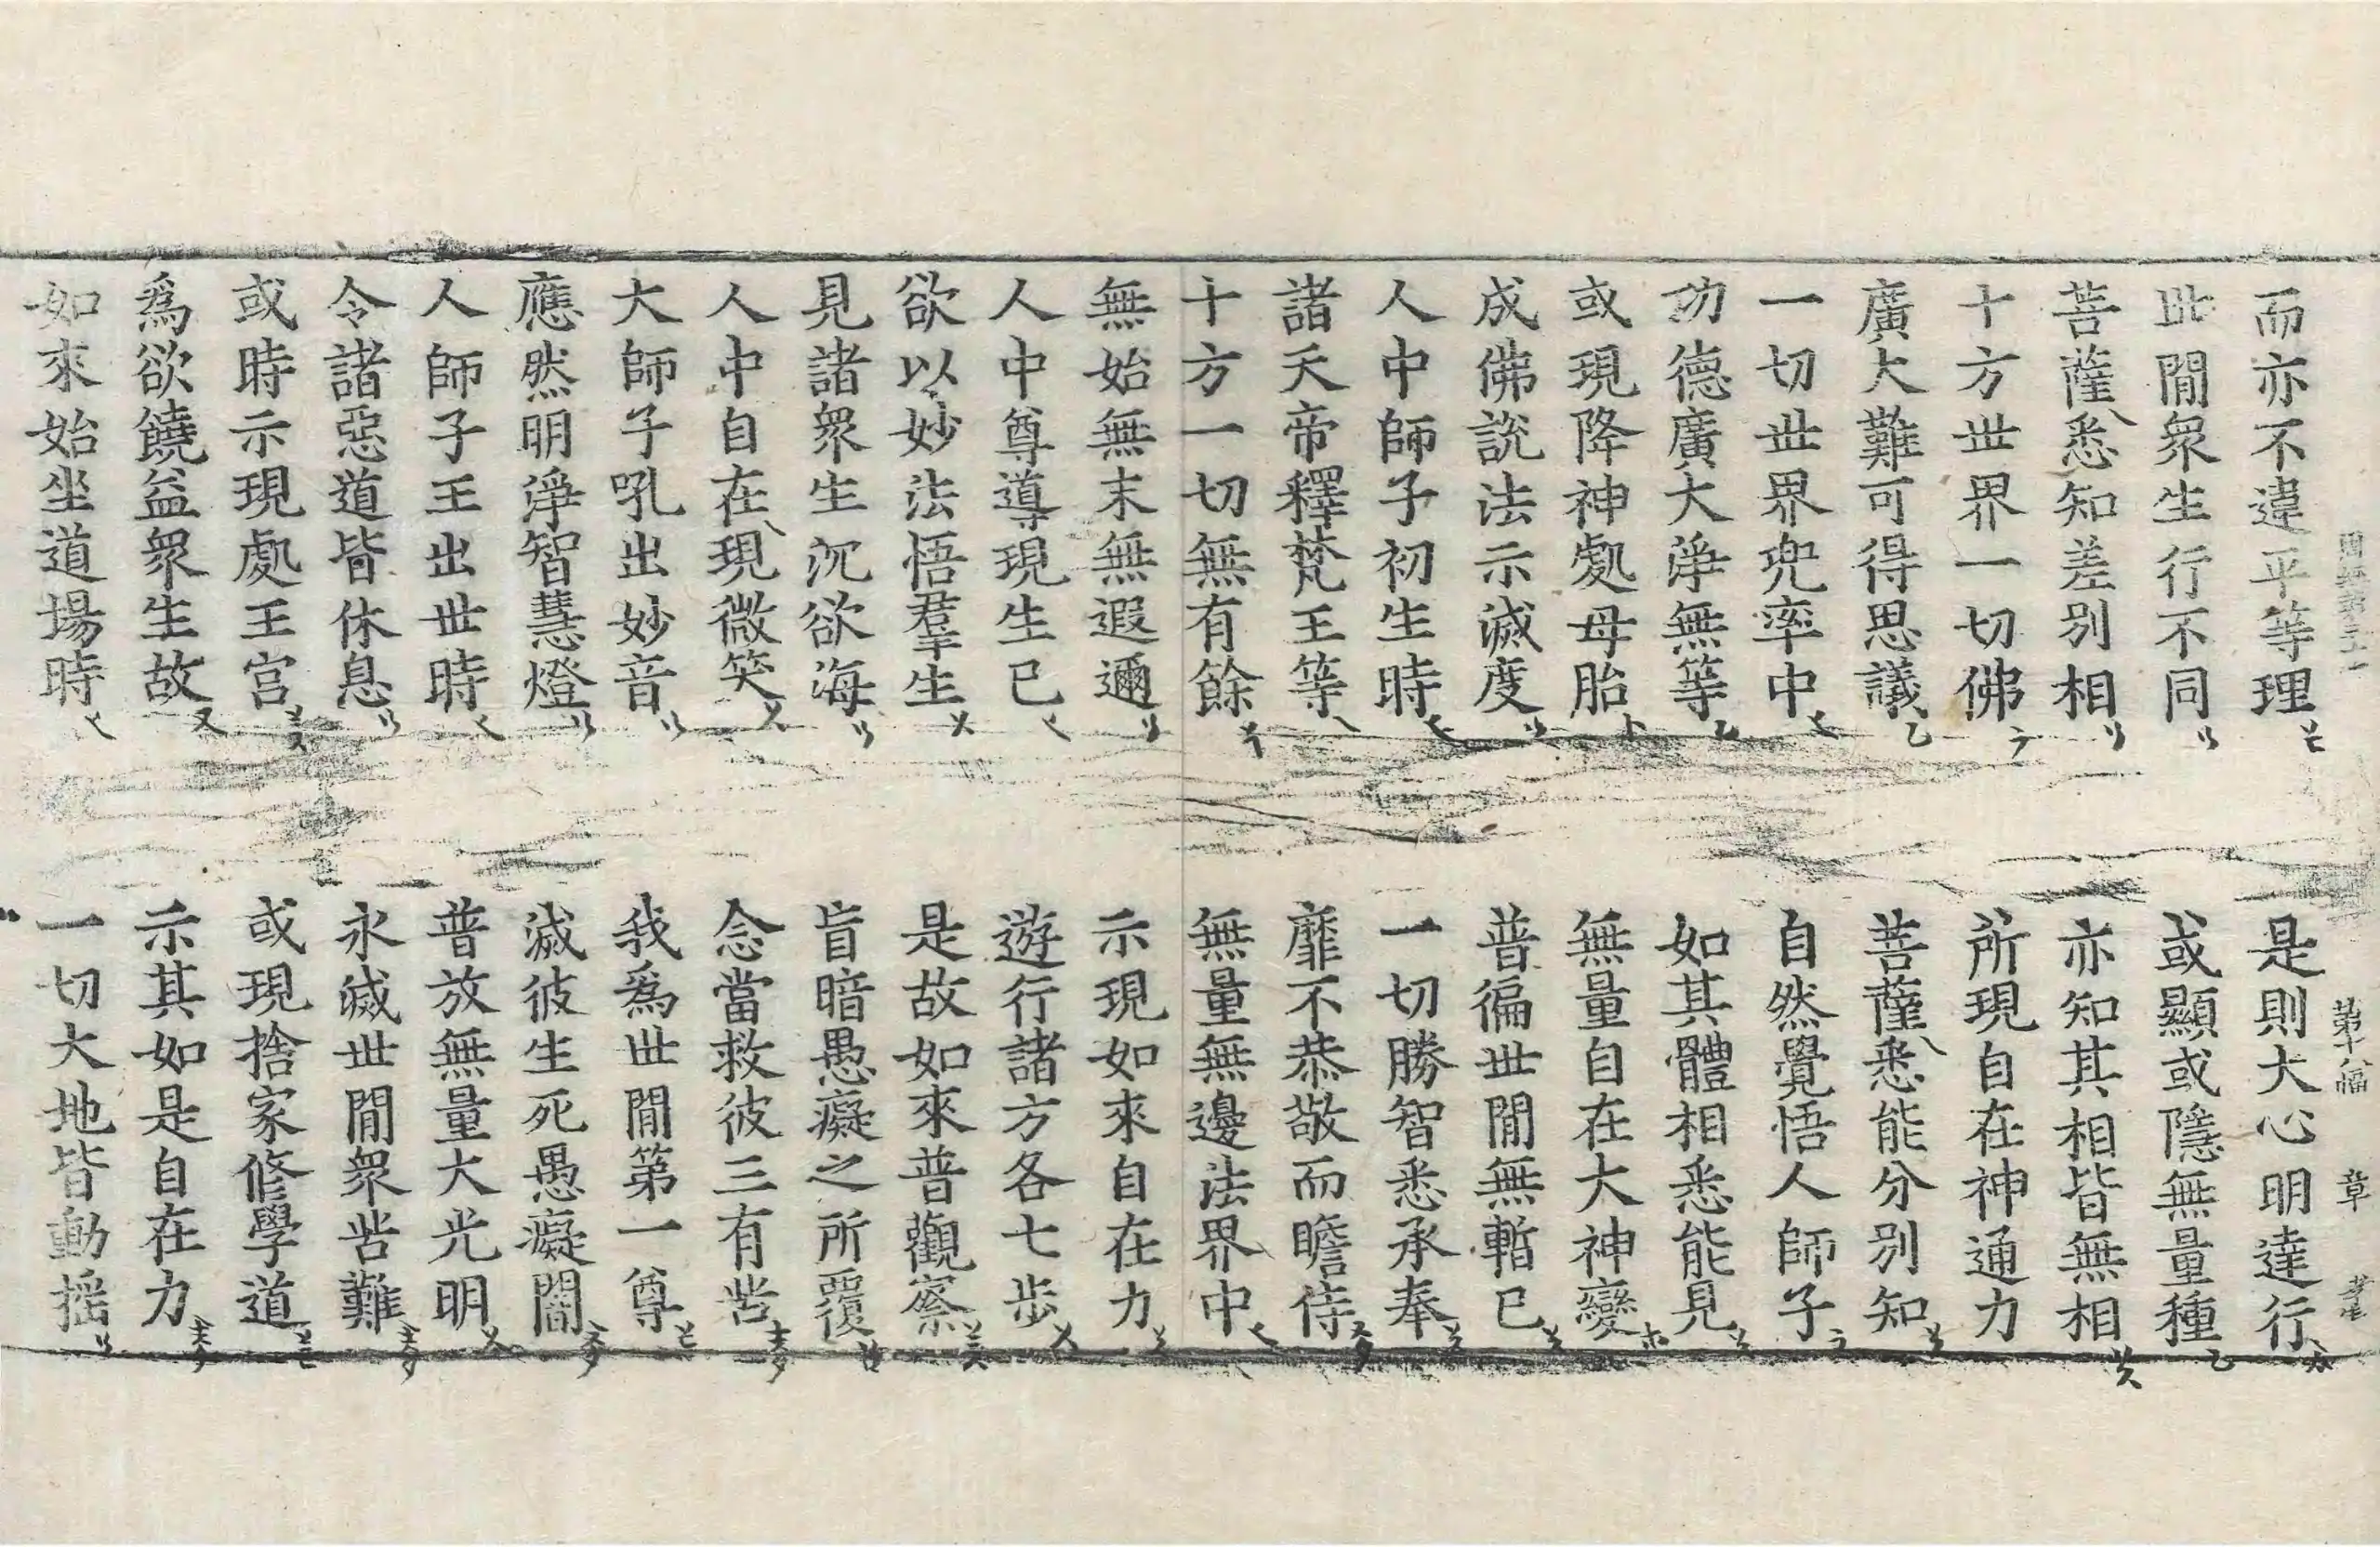 第十八幅 章
而亦不違平等理 是則大心明達行
世間衆生行不同 或顯或隱無量種
菩薩悉知差別相 亦知其相皆無相
十方世界一切佛 所現自在神通力
廣大難可得思議 菩薩悉能分別知
一切世界兜率中 自然覺悟人師子
功德廣大淨無等 如其體相悉能見
或現降神處母胎 無量自在大神變
成佛說法示滅度 普徧世間無暫已
人中師子初生時 一切勝智悉承奉
諸天帝釋梵王等 靡不恭敬而瞻侍
十方一切無有餘 無量無邊法界中
無始無末無遐邇 示現如來自在力
人中尊導現生已 遊行諸方各七步
欲以妙法悟羣生 是故如來普觀察
見諸衆生沉欲海 盲暗愚癡之所覆
人中自在現微笑 念當救彼三有苦
大師子吼出妙音 我爲世間第一尊
應然明淨智慧燈 滅彼生死愚癡闇
人師子王出世時 普放無量大光明
令諸惡道皆休息 永滅世間衆苦難
或時示現處王宮 或現捨家修學道
爲欲饒益衆生故 示其如是自在力
如來始坐道場時 一切大地皆動搖